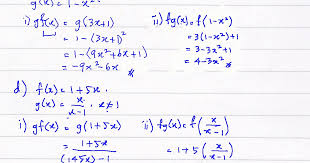 g(x) = 1-x²
i) gf(x) = g(3x+1)
= 1-(3x+1)²
= 1-(9x²+6x+1)
= -9x²-6x *
ii) fg(x) = f(1-x²)
= 3(1-x²)+1
= 3-3x²+1
= 4-3x² *
d) f(x) = 1+5x.
g(x) = x/x-1 . x≠1
i) gf(x) = g(1+5x)
= 1+5x/(1+5x)-1
ii) fg(x) = f(x/x-1)
= 1+5(x/x-1)